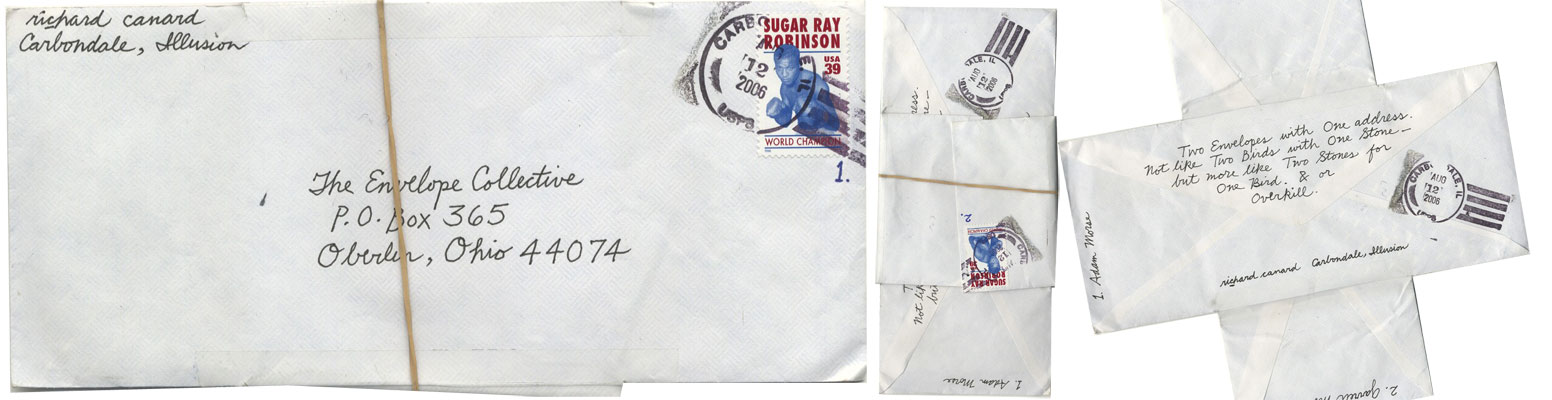 richard canard
Carbondale, Illusion
CARBONDALE IL
12
2006
USPS
SUGAR RAY
ROBINSON
USA
39
WORLD CHAMPION
1.
The Envelope Collective
P.O. Box 365
Oberlin, Ohio 44074
CARBONDALE, IL
AUG
12
2006
ress.
re-
2.
SUGAR RAY
ROBINSON
Not like
1. Adam Morse
Two Envelopes with One address.
Not like Two Birds with One Stone—
but more like Two Stones for
One Bird. & or
Overkill.
CARBONDALE, IL
AUG
12
2006
USPS
1. Adam Morse
richard canard Carbondale, Illusion
2. Garret